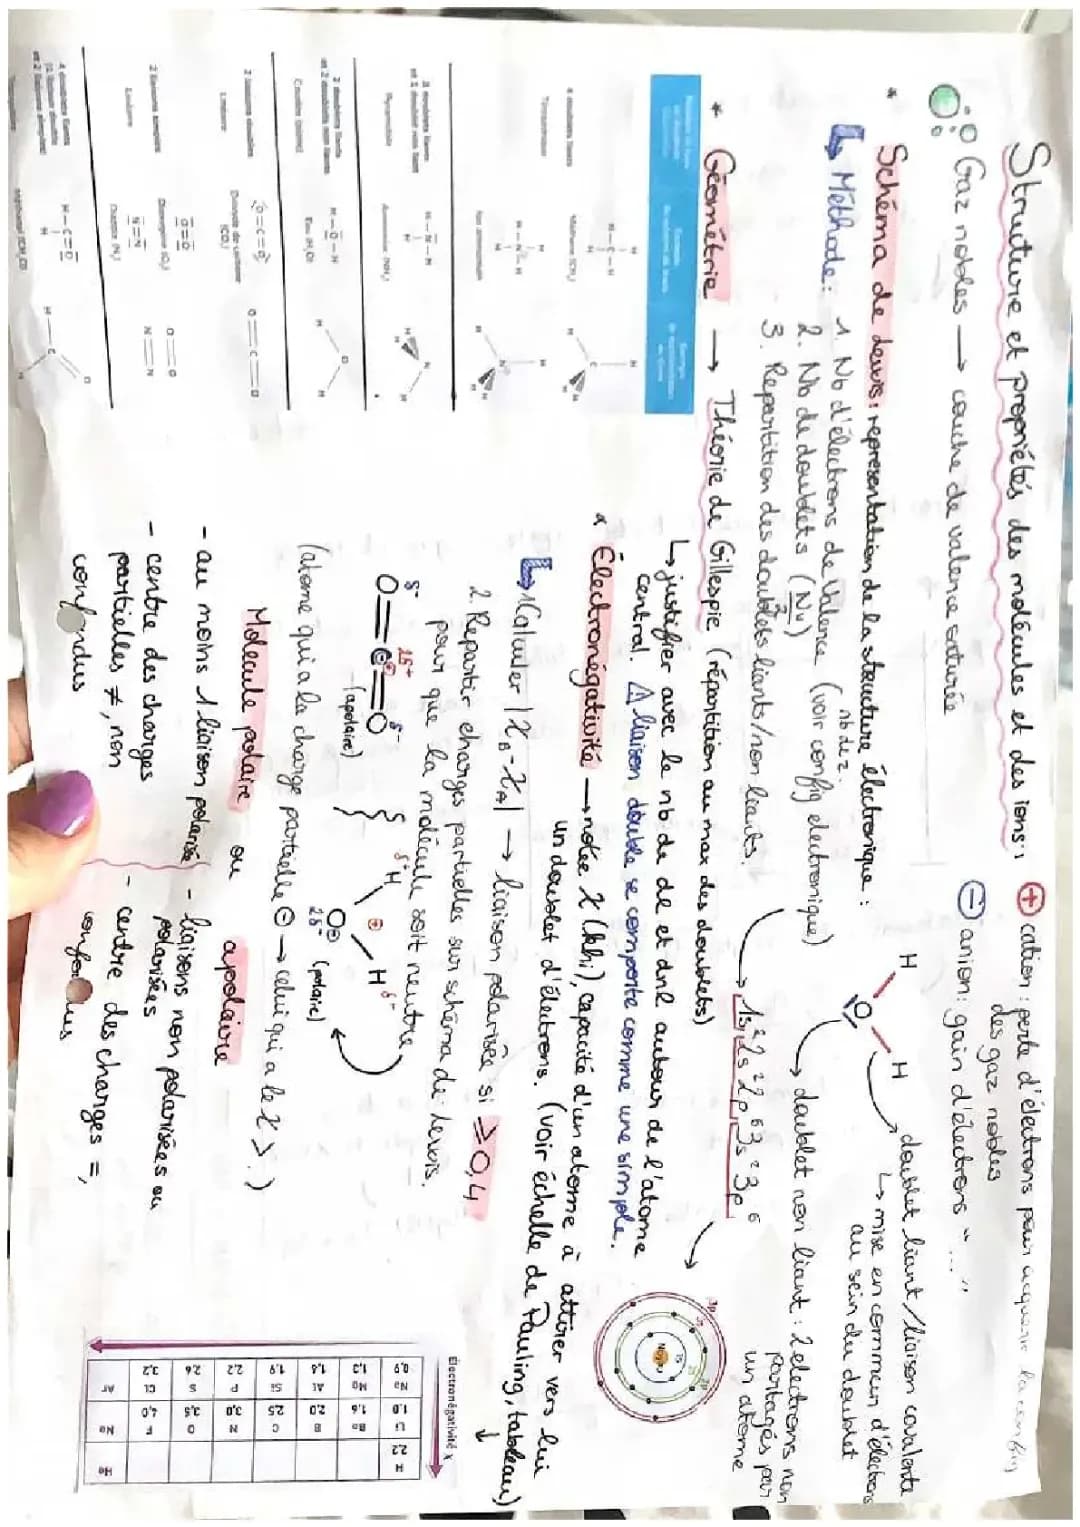 Structure et propriétés des molécules et des ions :
Gaz nobles → couche de valence saturée
⊕ cation : perte d'électrons pour acquérir la config
des gaz nobles
⊖ anion : gain d'électrons " ... "
* Schéma de Lewis : représentation de la structure électronique :
↳ Méthode : 1 Nb d'électrons de Valence (voir config electronique)
nb de z.
2. Nb de doublets (Nv/2)
3. Repartition des doublets liants/non liants.
H O H
doublet liant/liaison covalente
↳ mise en commun d'électrons
au sein du doublet
→ doublet non liant : 2 electrons non
partagés par
un atome
1s² 2s² 2p⁶ 3s² 3p⁶
* Géométrie → Théorie de Gillespie (répartition au max des doublets)
↳ justifier avec le nb de dl et dnl autour de l'atome
central. ⚠ liaison double se comporte comme une simple.
* Électronégativité → notée χ (khi), capacité d'un atome à attirer vers lui
un doublet d'électrons. (voir échelle de Pauling, tableau)
↳ 1 Calculer |χB - χA| → liaison polarisée si ≥ 0,4
2. Repartir charges partielles sur schéma de Lewis.
pour que la molécule soit neutre.
δ- 2δ+ δ-
O = C = O
(apolaire)
δ+H H δ-
O
2δ- (polaire)
(atome qui a la charge partielle ⊖ → celui qui a le χ >.)
Molecule polaire ou apolaire
- au moins 1 liaison polarisé
- centre des charges
partielles ≠, non
confondus
- liaisons non polarisées ou
polarisées
- centre des charges =,
confondus
4 doublets liants
Tétraédrique
Méthane (CH₄)
3 doublets liants
et 1 doublet non liant
Pyramidale
Ammoniac (NH₃)
2 doublets liants
et 2 doublets non liants
Coudée (plane)
Eau (H₂O)
2 liaisons doubles
Linéaire
Dioxyde de carbone
(CO₂)
Dioxygène (O₂)
Diazote (N₂)
Linéaire
Méthanal (CH₂O)
Électronégativité χ
H 2,2 He
Li 1,0 Be 1,6 B 2,0 C 2,5 N 3,0 O 3,5 F 4,0 Ne
Na 0,9 Mg 1,3 Al 1,6 Si 1,9 P 2,2 S 2,6 Cl 3,2 Ar